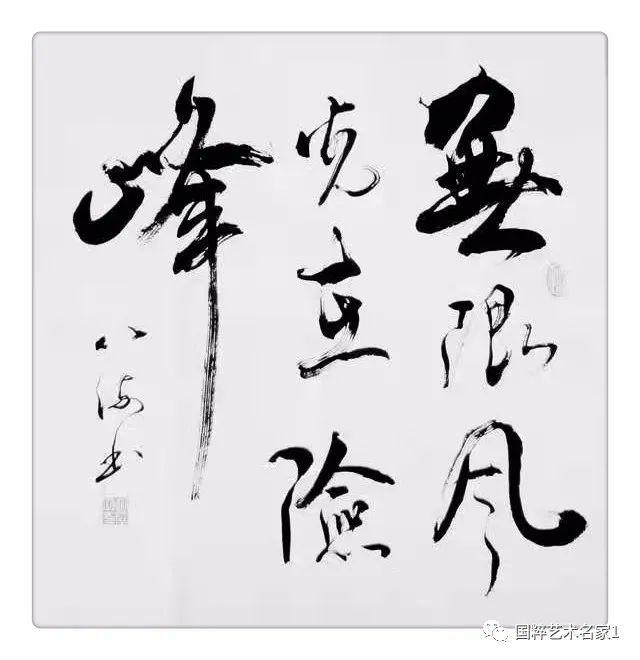 無限风
光在險
峰
八海书
国粹艺术名家1